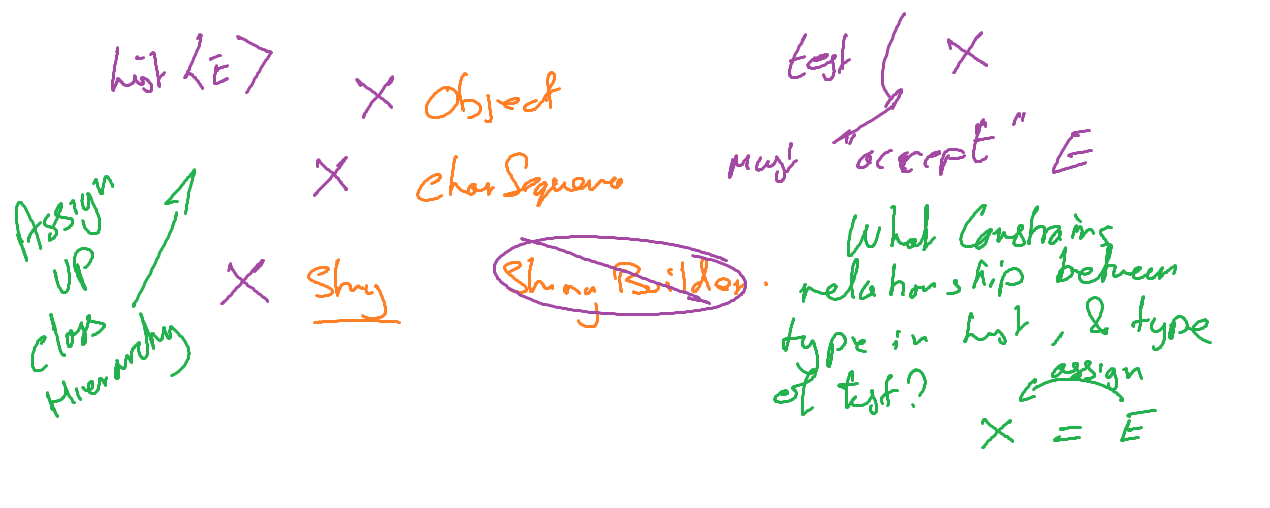 List <E>
X Object
X CharSequence
X String
String Builder.
Assign
UP
Class
Hierarchy
test ( X
must "accept" E
What Constrains
relationship between
type in List, & type
of test?
assign
X = E